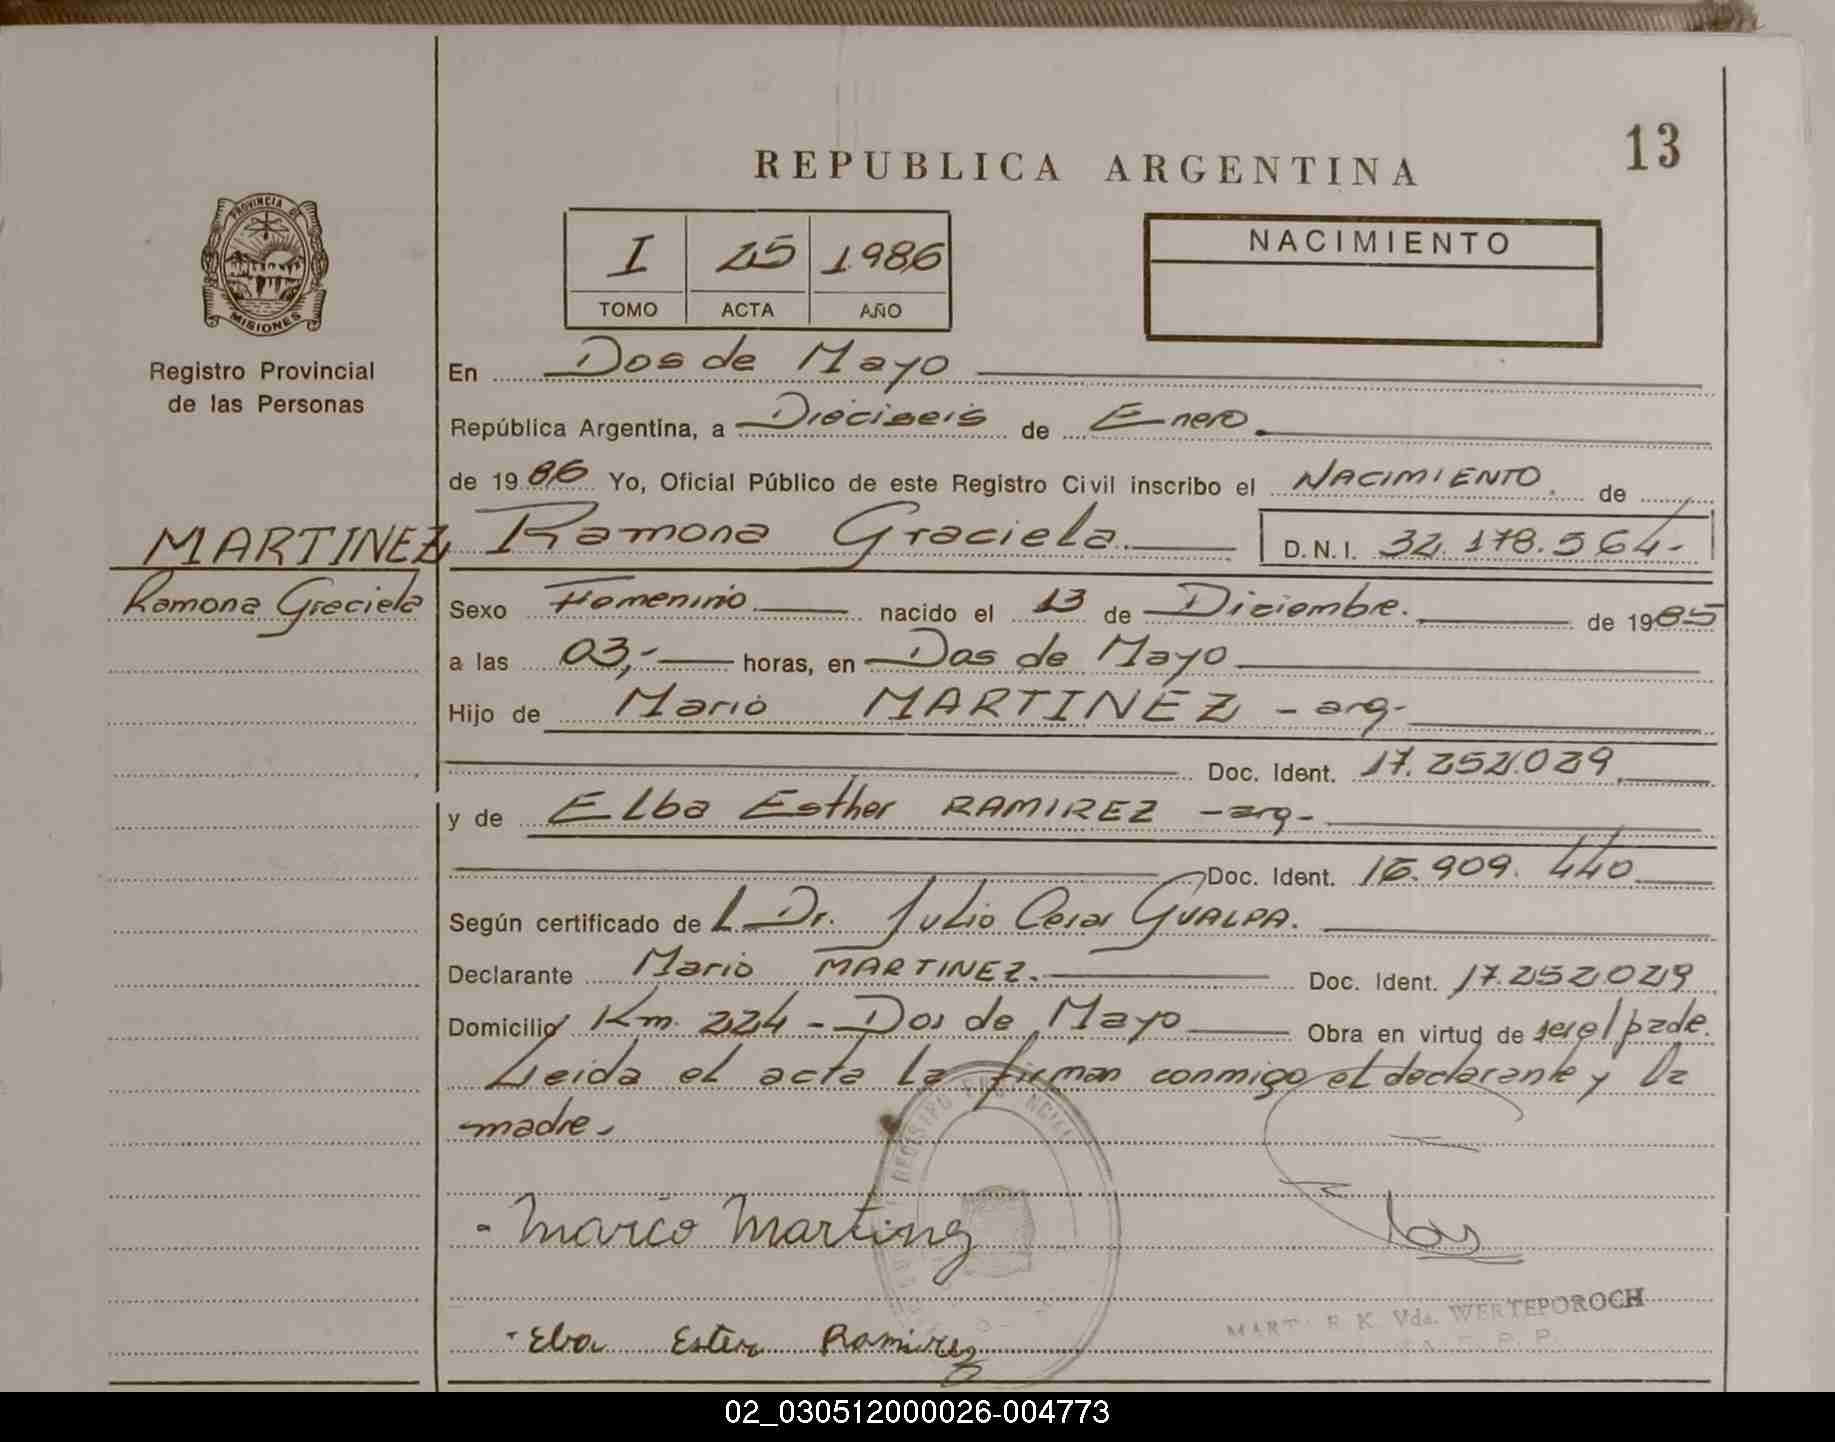 13
REPUBLICA ARGENTINA
PROVINCIA DE
MISIONES
Registro Provincial
de las Personas
I 25 1986
TOMO ACTA AÑO
NACIMIENTO
En Dos de Mayo
República Argentina, a Dieciseis de Enero.
de 1986 Yo, Oficial Público de este Registro Civil inscribo el NACIMIENTO. de
MARTINEZ Ramona Graciela D.N.I. 32.178.564-
Ramona Graciela
Sexo Femenino nacido el 13 de Diciembre. de 1985
a las 03,- horas, en Dos de Mayo
Hijo de Mario MARTINEZ - arg-
Doc. Ident. 17.252.029
y de Elba Esther RAMIREZ - arg-
Doc. Ident. 16.909.440
Según certificado de L Dr. Julio Cesar GUALPA.
Declarante Mario MARTINEZ. Doc. Ident. 17.252.029
Domicilio Km. 224 - Dos de Mayo Obra en virtud de ser el padre.
Leida el acta la firman conmigo el declarante y la
madre.
- Mario Martinez
- Elva Ester Ramirez
K. Vda. WERTEPOROCH
02_030512000026-004773